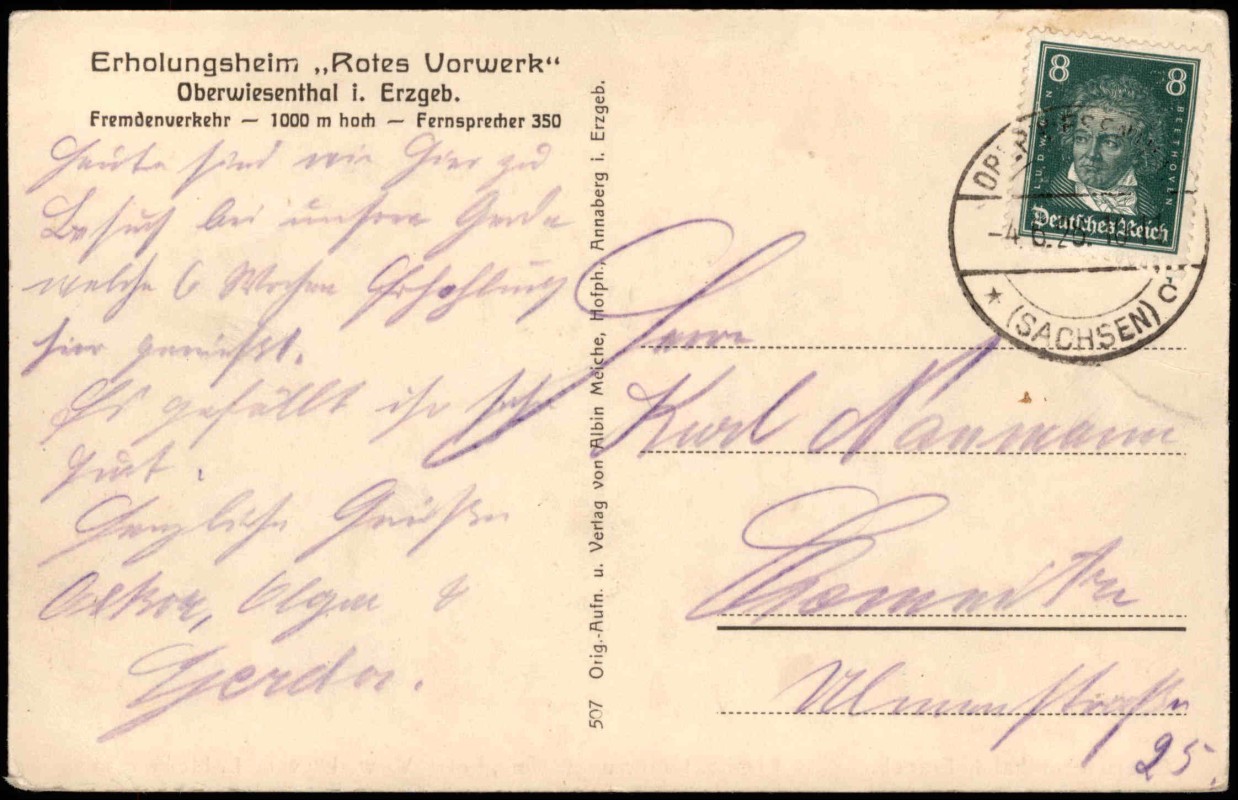 Erholungsheim „Rotes Vorwerk“
Oberwiesenthal i. Erzgeb.
Fremdenverkehr — 1000 m hoch — Fernsprecher 350
Heute sind wir hier zu
Besuch bei unsrer Gerda
welche 6 Wochen Erhohlung
hier genießt.
Es gefällt ihr sehr
gut.
Herzliche Grüße
Oskar, Olga &
Gerda.
507 Orig.-Aufn. u. Verlag von Albin Meiche, Hofph., Annaberg i. Erzgeb.
8 8
LUDWIG VAN BEETHOVEN
Deutsches Reich
(SACHSEN)
Herrn
Karl Naumann
Chemnitz
Ulmenstraße
25.